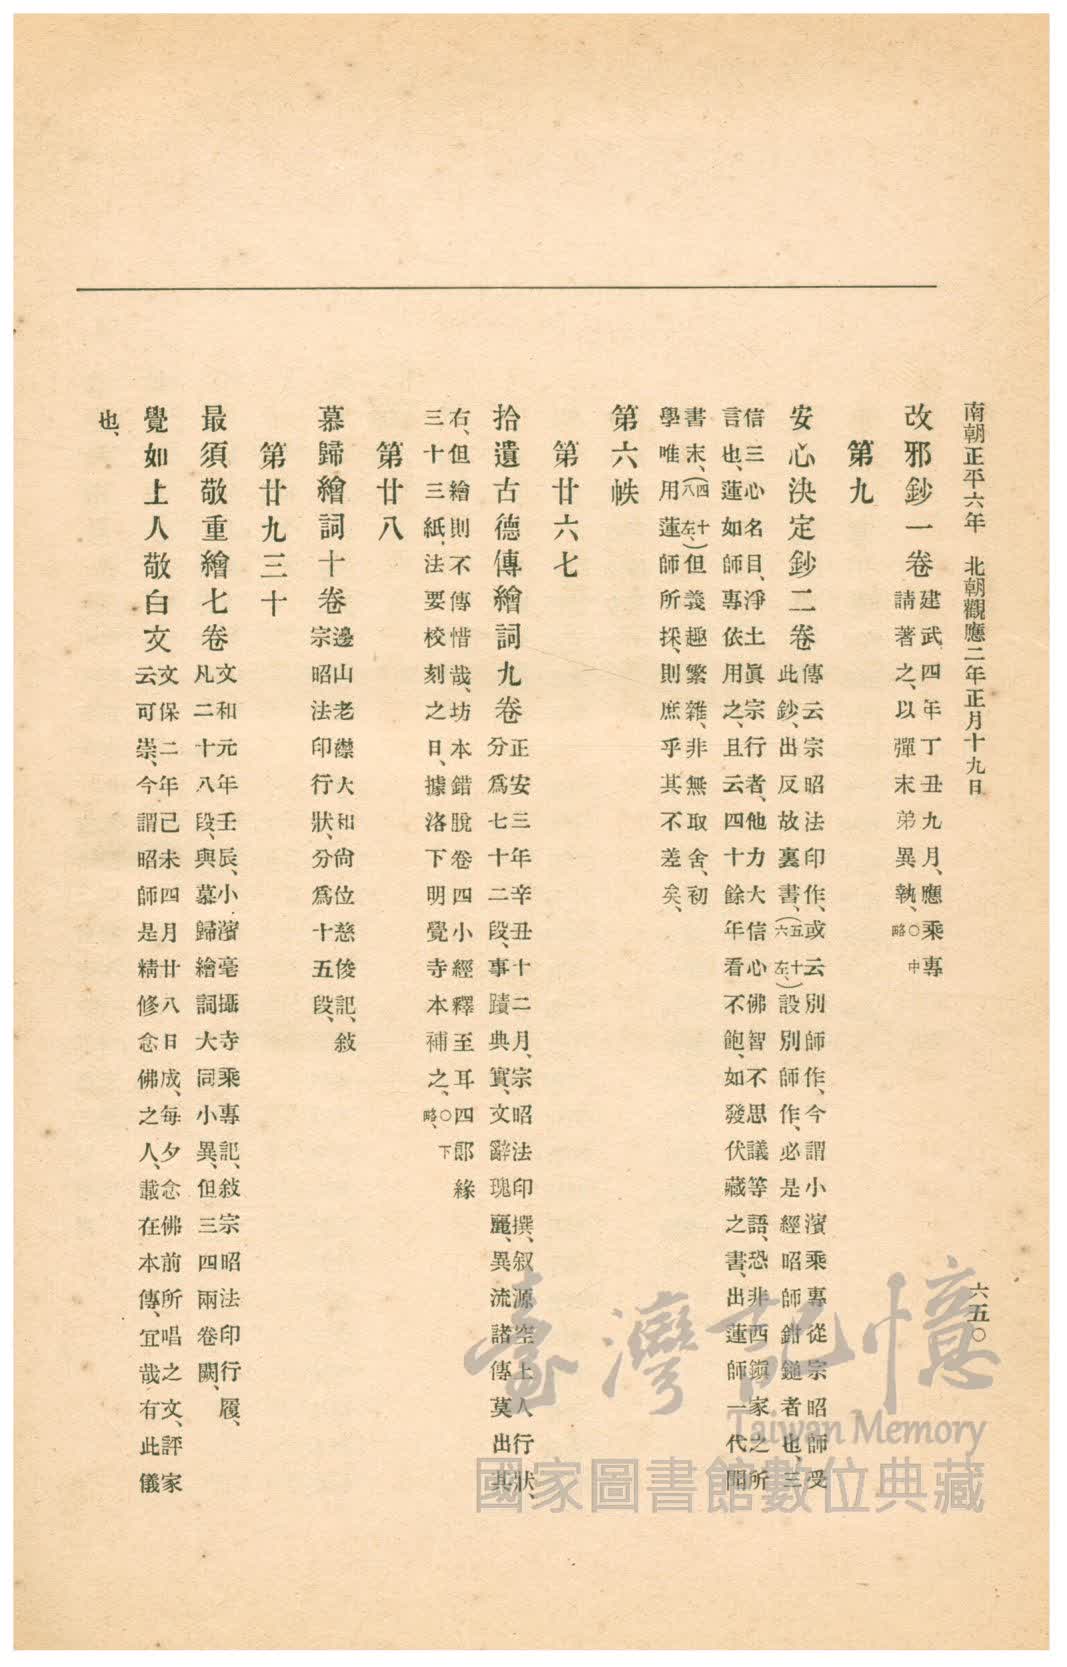 南朝正平六年　北朝觀應二年正月十九日
六五〇
改邪鈔一卷
建武四年丁丑九月、應乘專
請著之、以彈末弟異執、〇中略
第九
安心決定鈔二卷
傳云宗昭法印作、或云別師作、今謂小濱乘專從宗昭師受
此鈔、出反故裏書、(五十六左、)設別師作、必是經昭師鉗鎚者也、三
信三心名目、淨土眞宗行者、他力大信心佛智不思議等語、恐非西鎭家之所
言也、蓮如師專依用之、且云四十餘年看不飽、如發伏藏之書、出蓮師一代聞
書末、(四十八左、)但義趣繁雜、非無取舍、初
學唯用蓮師所採、則庶乎其不差矣、
第六帙
第廿六七
拾遺古德傳繪詞九卷
正安三年辛丑十二月、宗昭法印撰、叙源空上人行狀、
分爲七十二段、事蹟典實、文辭瑰麗、異流諸傳莫出其
右、但繪則不傳惜哉、坊本錯脫卷四小經釋至耳四郞緣
三十三紙、法要校刻之日、據洛下明覺寺本補之、〇下略、
第廿八
慕歸繪詞十卷
邊山老襟大和尙位慈俊記、敍
宗昭法印行狀、分爲十五段、
第廿九三十
最須敬重繪七卷
文和元年壬辰、小濱毫攝寺乘專記、敍宗昭法印行履、
凡二十八段、與慕歸繪詞大同小異、但三四兩卷闕、
覺如上人敬白文
文保二年己未四月廿八日成、每夕念佛前所唱之文、評家
云可崇、今謂昭師是精修念佛之人、載在本傳、宜哉有此儀
也、
臺灣記憶
Taiwan Memory
國家圖書館數位典藏